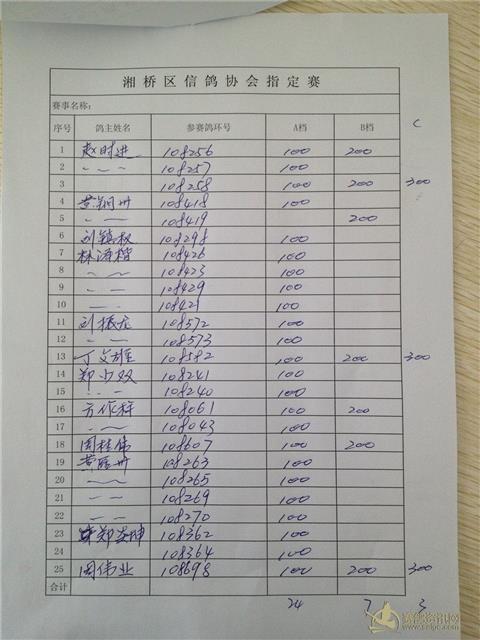 湘桥区信鸽协会指定赛
赛事名称:
序号 鸽主姓名 参赛鸽环号 A档 B档 C
1 赵时进 108256 100 200
2 〃 108257 100
3 108258 100 200 300
4 108418 100
5 〃 108419 200
6 刘镇权 108298 100
7 林海楷 108426 100
8 〃 108423 100
9 〃 108429 100
10 〃 108421 100
11 刘振 108572 100
12 〃 108573 100
13 丁文雄 108582 100 200 300
14 郑少双 108241 100
15 〃 108240 100
16 方作辉 108061 100 200
17 〃 108043 100
18 周桂伟 108607 100 200
19 108263 100
20 〃 108265 100
21 〃 108269 100
22 〃 108270 100
23 108362 100
24 108364 100
25 周伟业 108698 100 200 300
合计
24 7 3